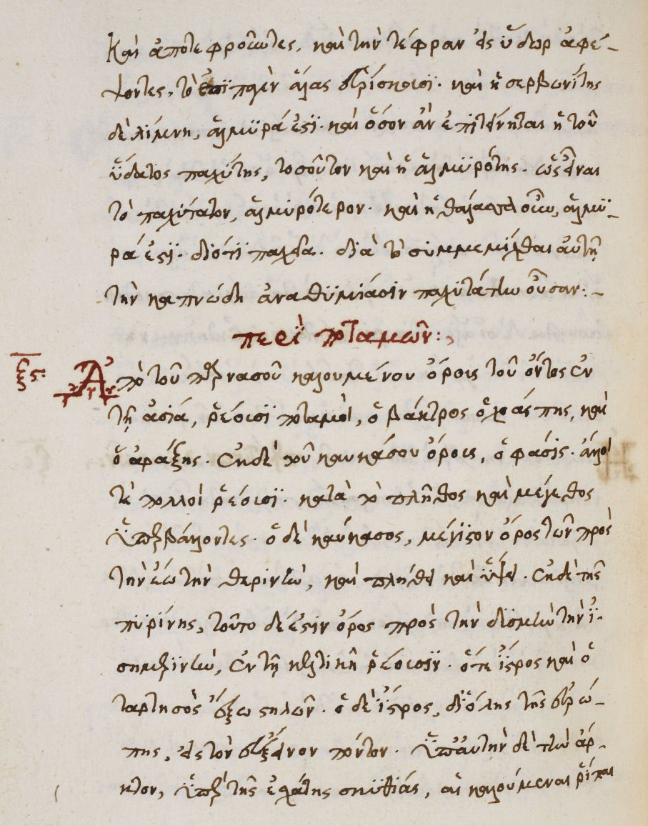 καὶ ἀποτεφροῦντες, καὶ τὴν τέφραν εἰς ὕδωρ ἀφέ-
ψοντες, τὸ ἐπιπολῆς ἅλας εὑρίσκουσϊ. καὶ ἡ σερβωνίτης
δὲ λίμνη, ἁλμϋρά ἐστϊ. καὶ ὅσον ἂν ἐπιτείνηται ἡ τοῦ
ὕδατος παχύτης, τοσοῦτον καὶ ἡ ἁλμϋρότης. ὡς εἶναι
τὸ παχύτατον, ἁλμυρότερον. καὶ ἡ θάλασσα οὕτω, ἁλμϋ-
ρά ἐστϊ. διότι παχεῖα. διὰ τὸ συμμεμίχθαι αὐτῇ
τὴν καπνώδη ἀναθϋμίασιν παχϋτάτην οὖσαν:-
περὶ ποταμῶν:,
ξϛ. Ἀπὸ τοῦ παρνασοῦ καλουμένου ὄρους τοῦ ὄντος ἐν
τῇ ἀσίᾳ, ῥέουσϊ ποταμοὶ, ὁ βάκτρος ὁ χοάσπης, καὶ
ὁ ἀράξης. ἐκ δὲ τοῦ καυκάσου ὄρους, ὁ φάσις. ἄλλοι
τὲ πολλοὶ ῥέουσϊ. κατὰ τὸ πλῆθος καὶ μέγεθος
ὑπερβάλλοντες. ὁ δὲ καύκασος, μέγιστον ὄρος τῶν πρὸς
τὴν ἕω τὴν θερινὴν, καὶ πλήθει καὶ ὕψει. ἐκ δὲ τῆς
πϋρίνης, τοῦτο δέ ἐστιν ὄρος πρὸς τὴν δϋσμὴν τὴν ἰ-
σημερινὴν, ἐν τῇ κελτικῇ ῥέουσϊν. ὅτε ἴστρος καὶ ὁ
ταρτησὸς ἔξω στηλῶν. ὁ δὲ ἴστρος, δϊ ὅλης τῆς εὐρώ-
πης, εἰς τὸν εὔξεινον πόντον. ὑπ αὐτὴν δὲ τὴν ἄρ-
κτον, ὑπὲρ τῆς ἐσχάτης σκϋθίας, αἱ καλούμεναι ῥίπαι